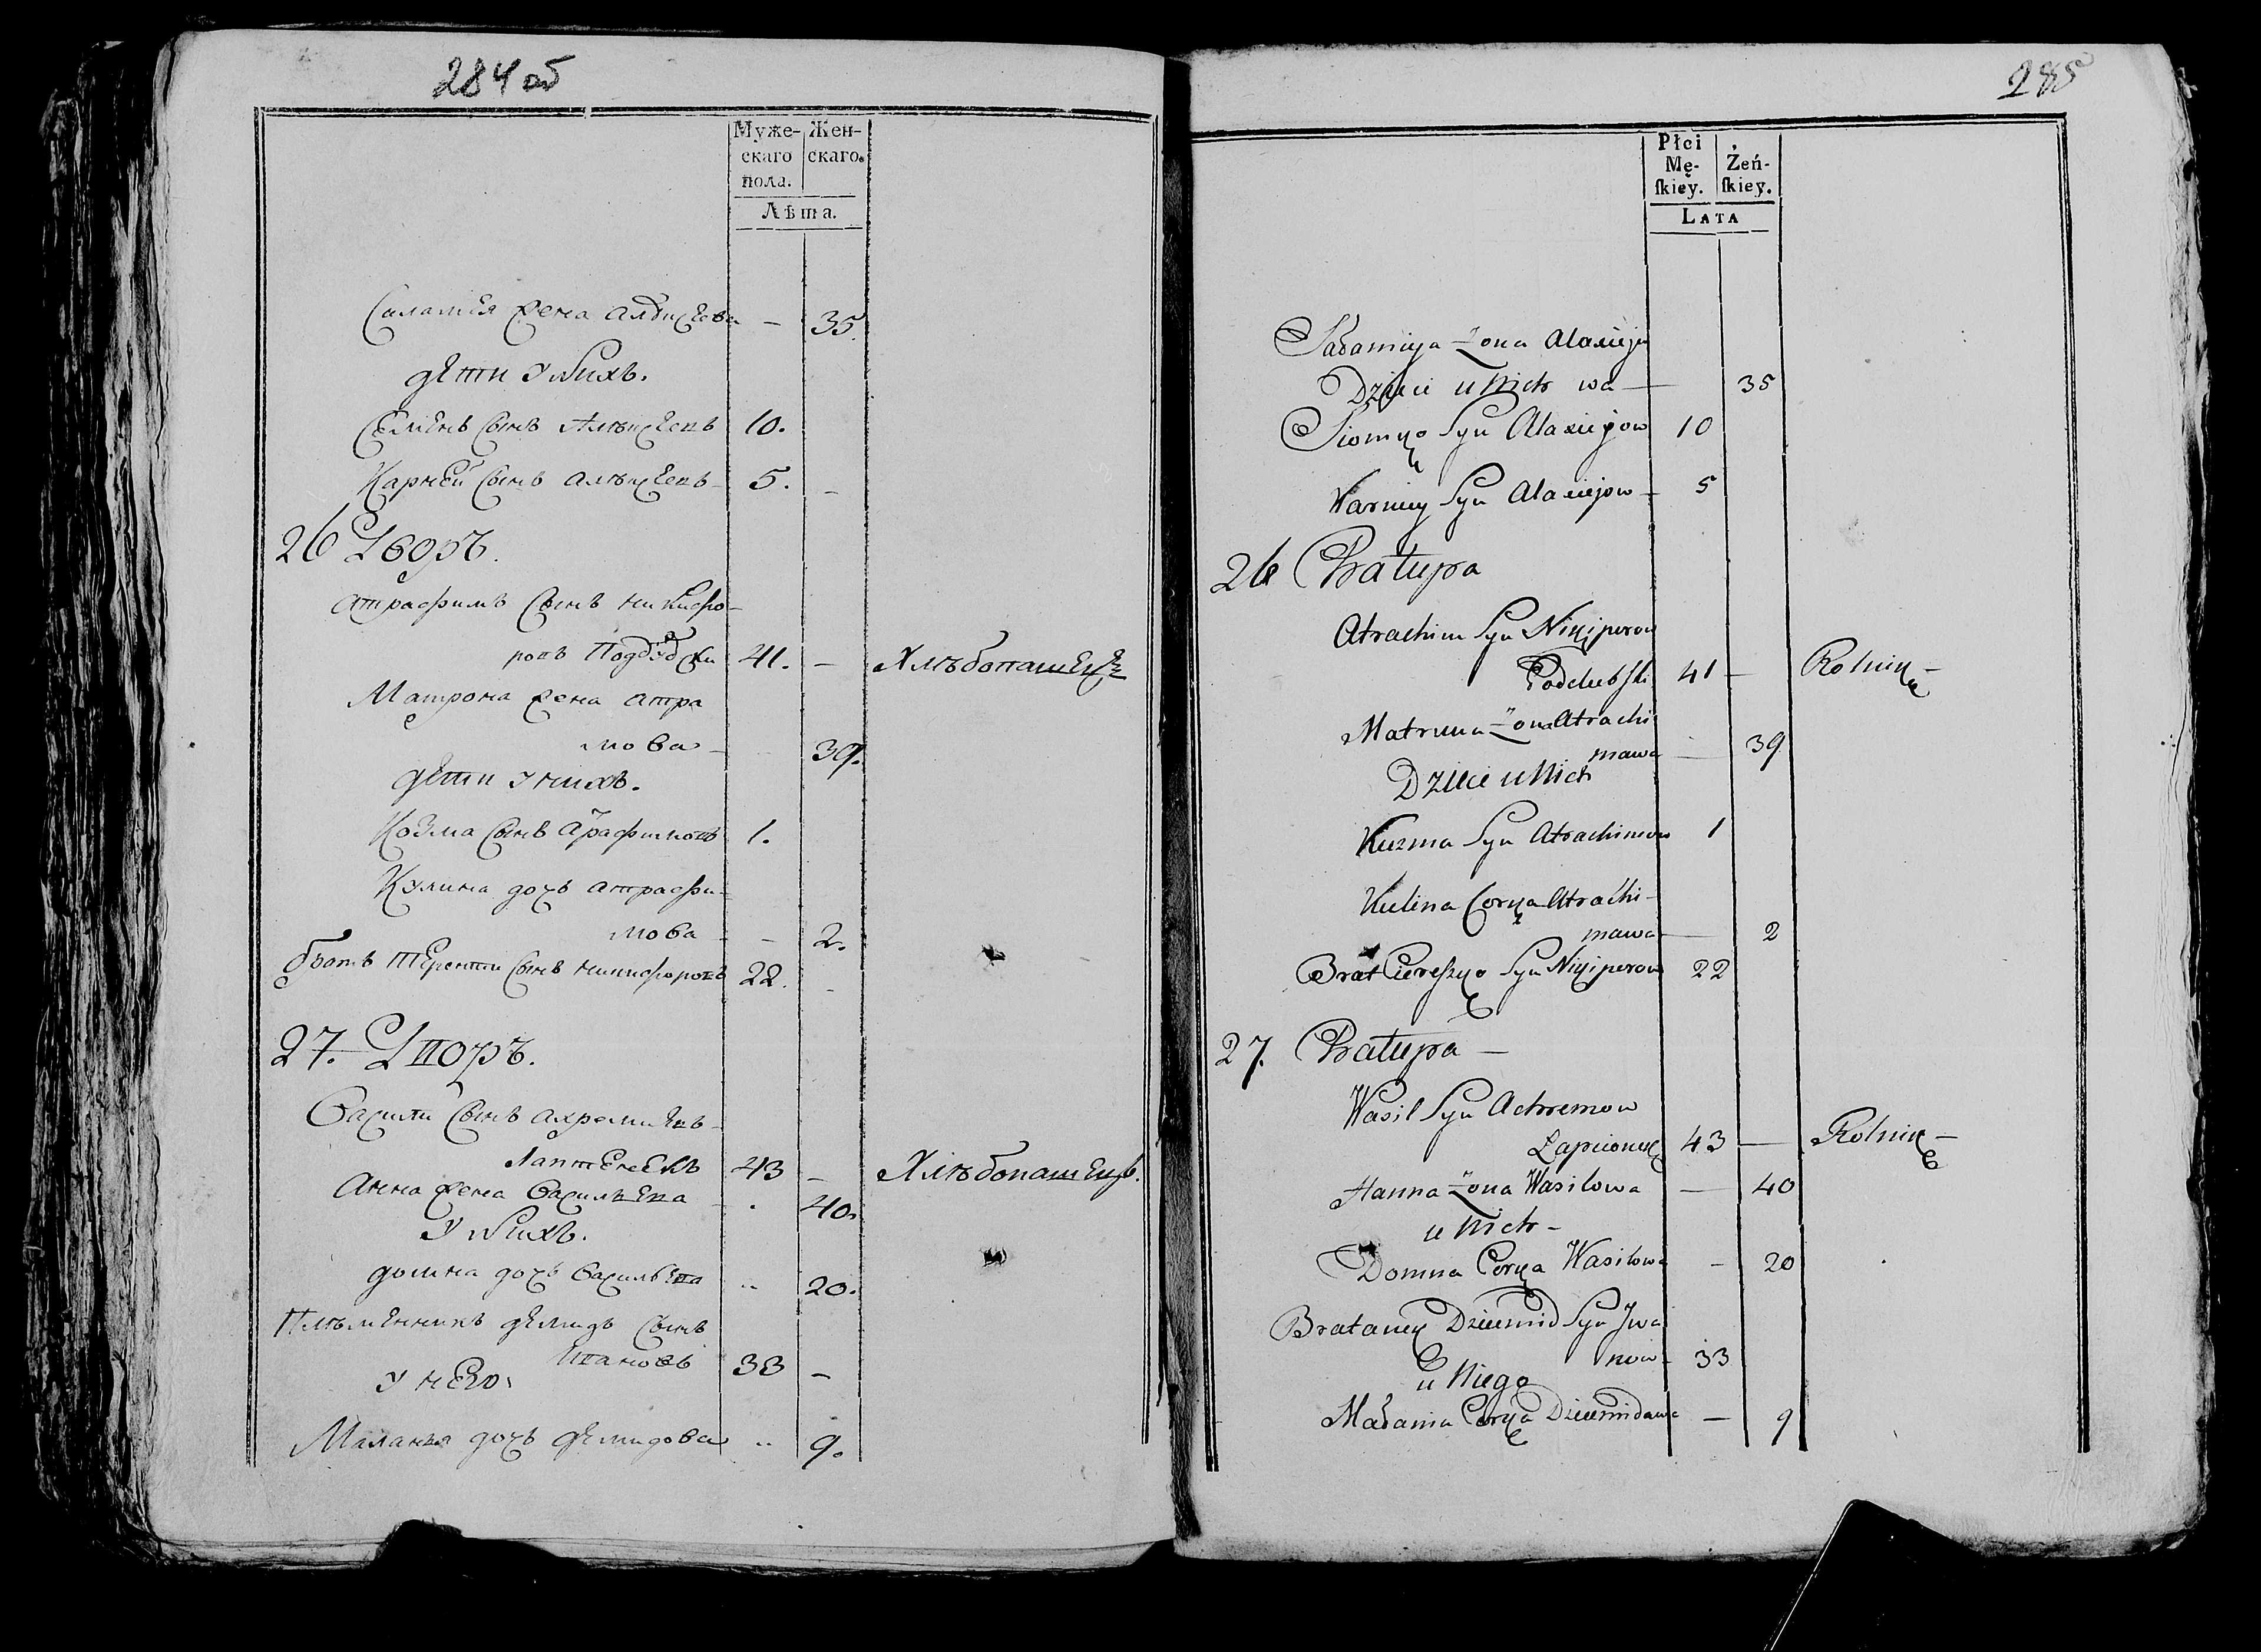 284 об
Муже-
скаго
пола.
Жен-
скаго.
Лѣта.
Саламея жена Алексеева — 35.
дети у Них.
Семенъ сынъ Алексеевъ 10.
Карней сынъ Алексеевъ 5. –
26 Дворъ.
Атрафимъ сынъ Никифо-
ровъ Поддубски 41. – Хлѣбопашецъ
Матрона жена Атра
мова – 39.
дети у нихъ.
Козма сынъ Атрафимовъ 1.
Кулина дочь Атрафи-
мова – – 2.
братъ Терентии сынъ Никифоровъ 22. –
27. Дворъ.
Василий сынъ Ахремиевъ
Лаптенекъ 43 – Хлѣбопашецъ.
Анна жена Васильева 40.
У Нихъ.
домна дочь Васильева 20.
Племенникъ демидъ сынъ
Ивановъ 33 –
У него.
Маланья дочь демидова 9.
285
Płci
Mę-
skiey.
Żeń-
skiey.
LATA
Sałamieja Żona Alaxieje
Dzieci u Nich wa — 35
Siomko Syn Alaxiejow 10
Karniey Syn Alaxiejow – 5
26 Chałupa
Atrachim Syn Nikiperow
Poddubski 41 — Rolnik –
Matruna Żona Atrachi
mawa — 39
Dzieci u Nich
Kuzma Syn Atrachimow 1
Kulina Corka Atrachi-
mawa — 2
Brat Ciereszko Syn Nikiperow 22
27. Chałupa —
Wasil Syn Achremow
Łapcionek 43 — Rolnik –
Hanna Żona Wasilowa — 40
u Nich –
Domna Corka Wasilowa – 20
Bratanek Dziemid Syn Iwa
now – 33
u Niego
Małania Corka Dziemidawa — 9